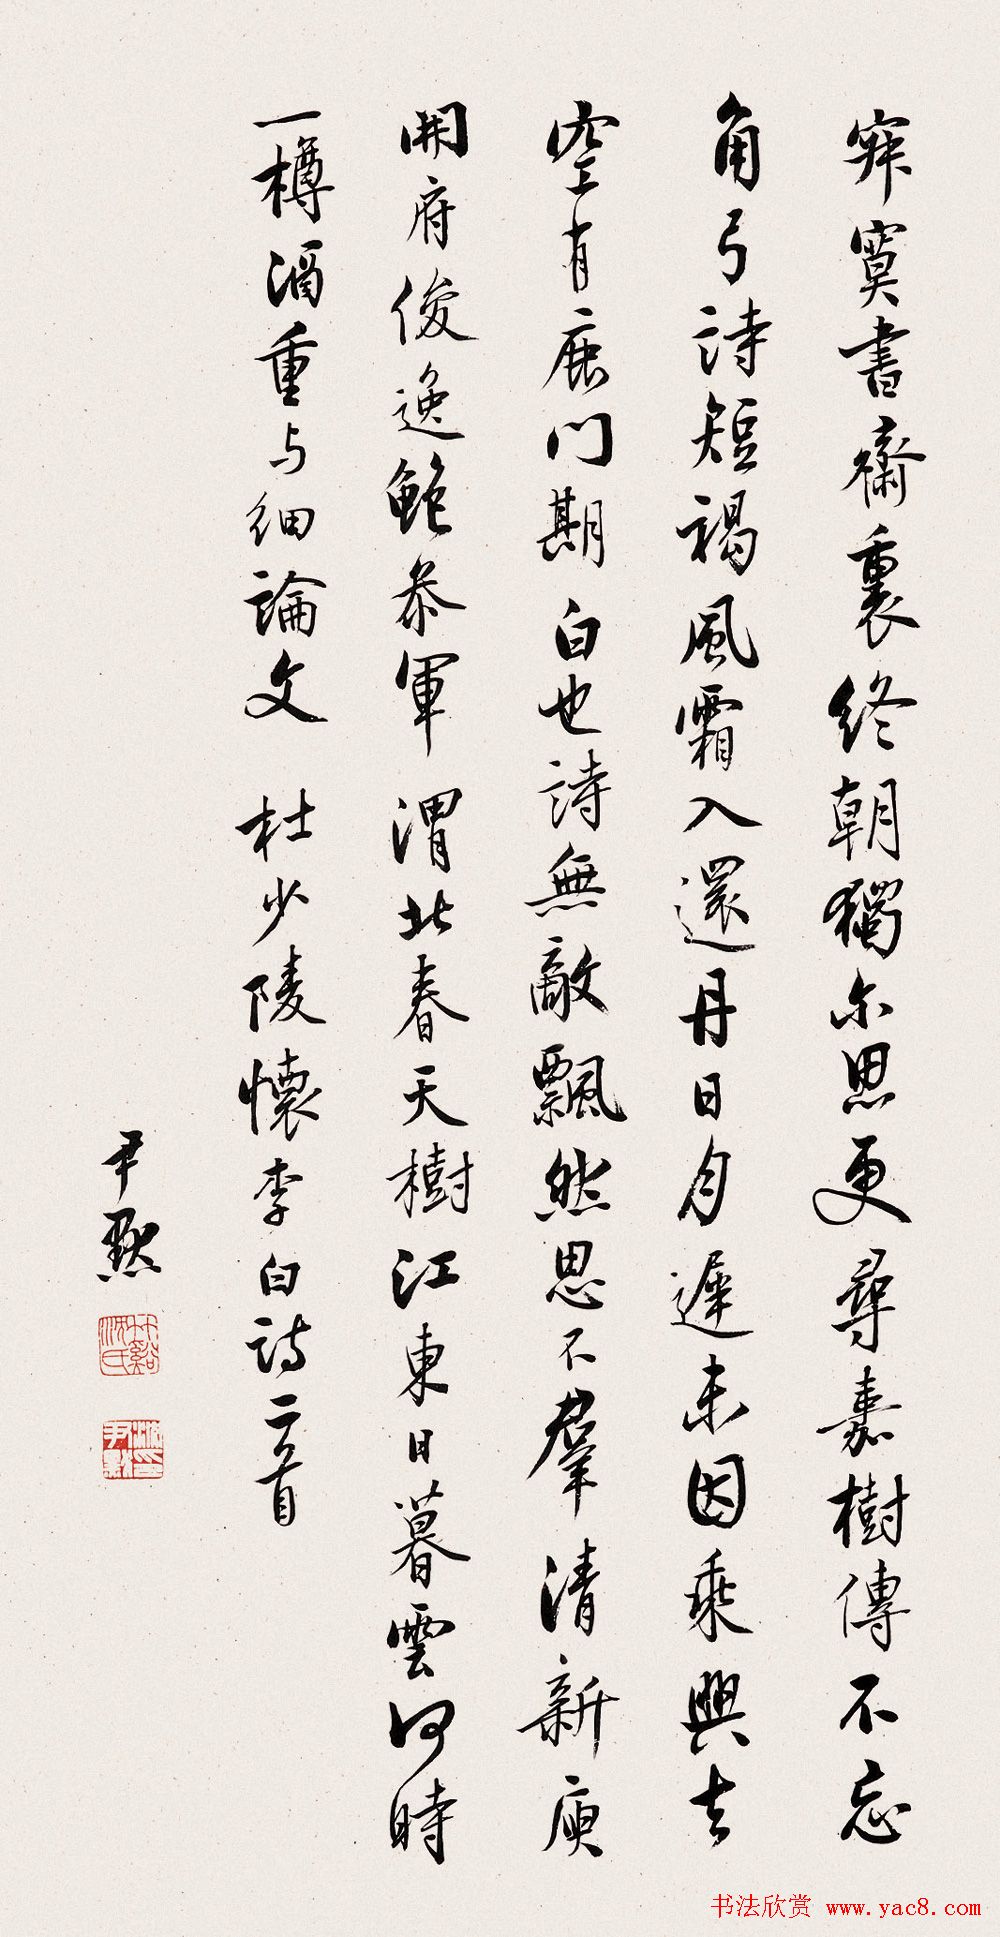 寂寞書齋裏終朝獨尔思更尋嘉樹傳不忘
角弓詩短褐風霜入還丹日月遲未因乘興去
空有鹿門期白也詩無敵飄然思不群清新庾
開府俊逸鮑參軍渭北春天樹江東日暮雲何時
一樽酒重与细論文 杜少陵懷李白詩二首
尹默
竹谿沈氏
沈尹默印
书法欣赏 www.yac8.com